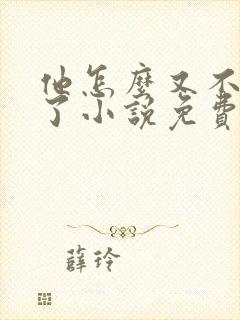 他怎麼又不
了小說免費
薛玲